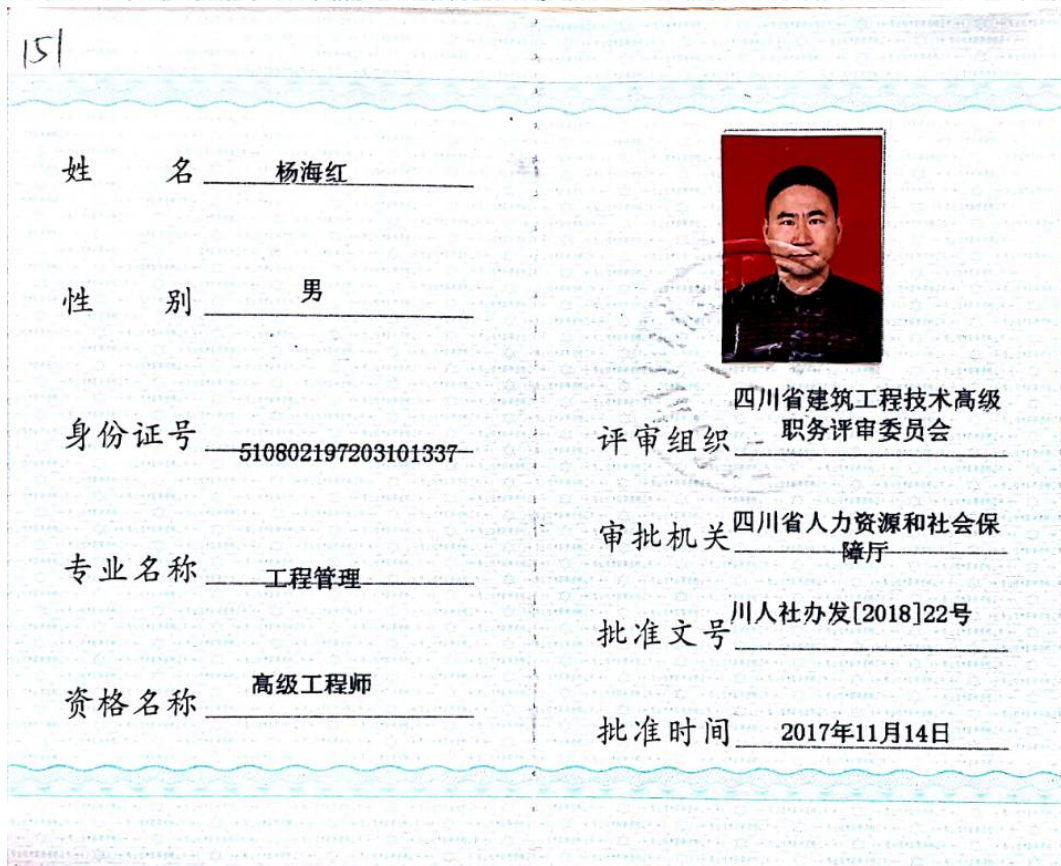 151
姓 名 杨海红
性 别 男
身份证号 510802197203101337
专业名称 工程管理
资格名称 高级工程师
评审组织 四川省建筑工程技术高级
职务评审委员会
审批机关 四川省人力资源和社会保
障厅
批准文号 川人社办发[2018]22号
批准时间 2017年11月14日